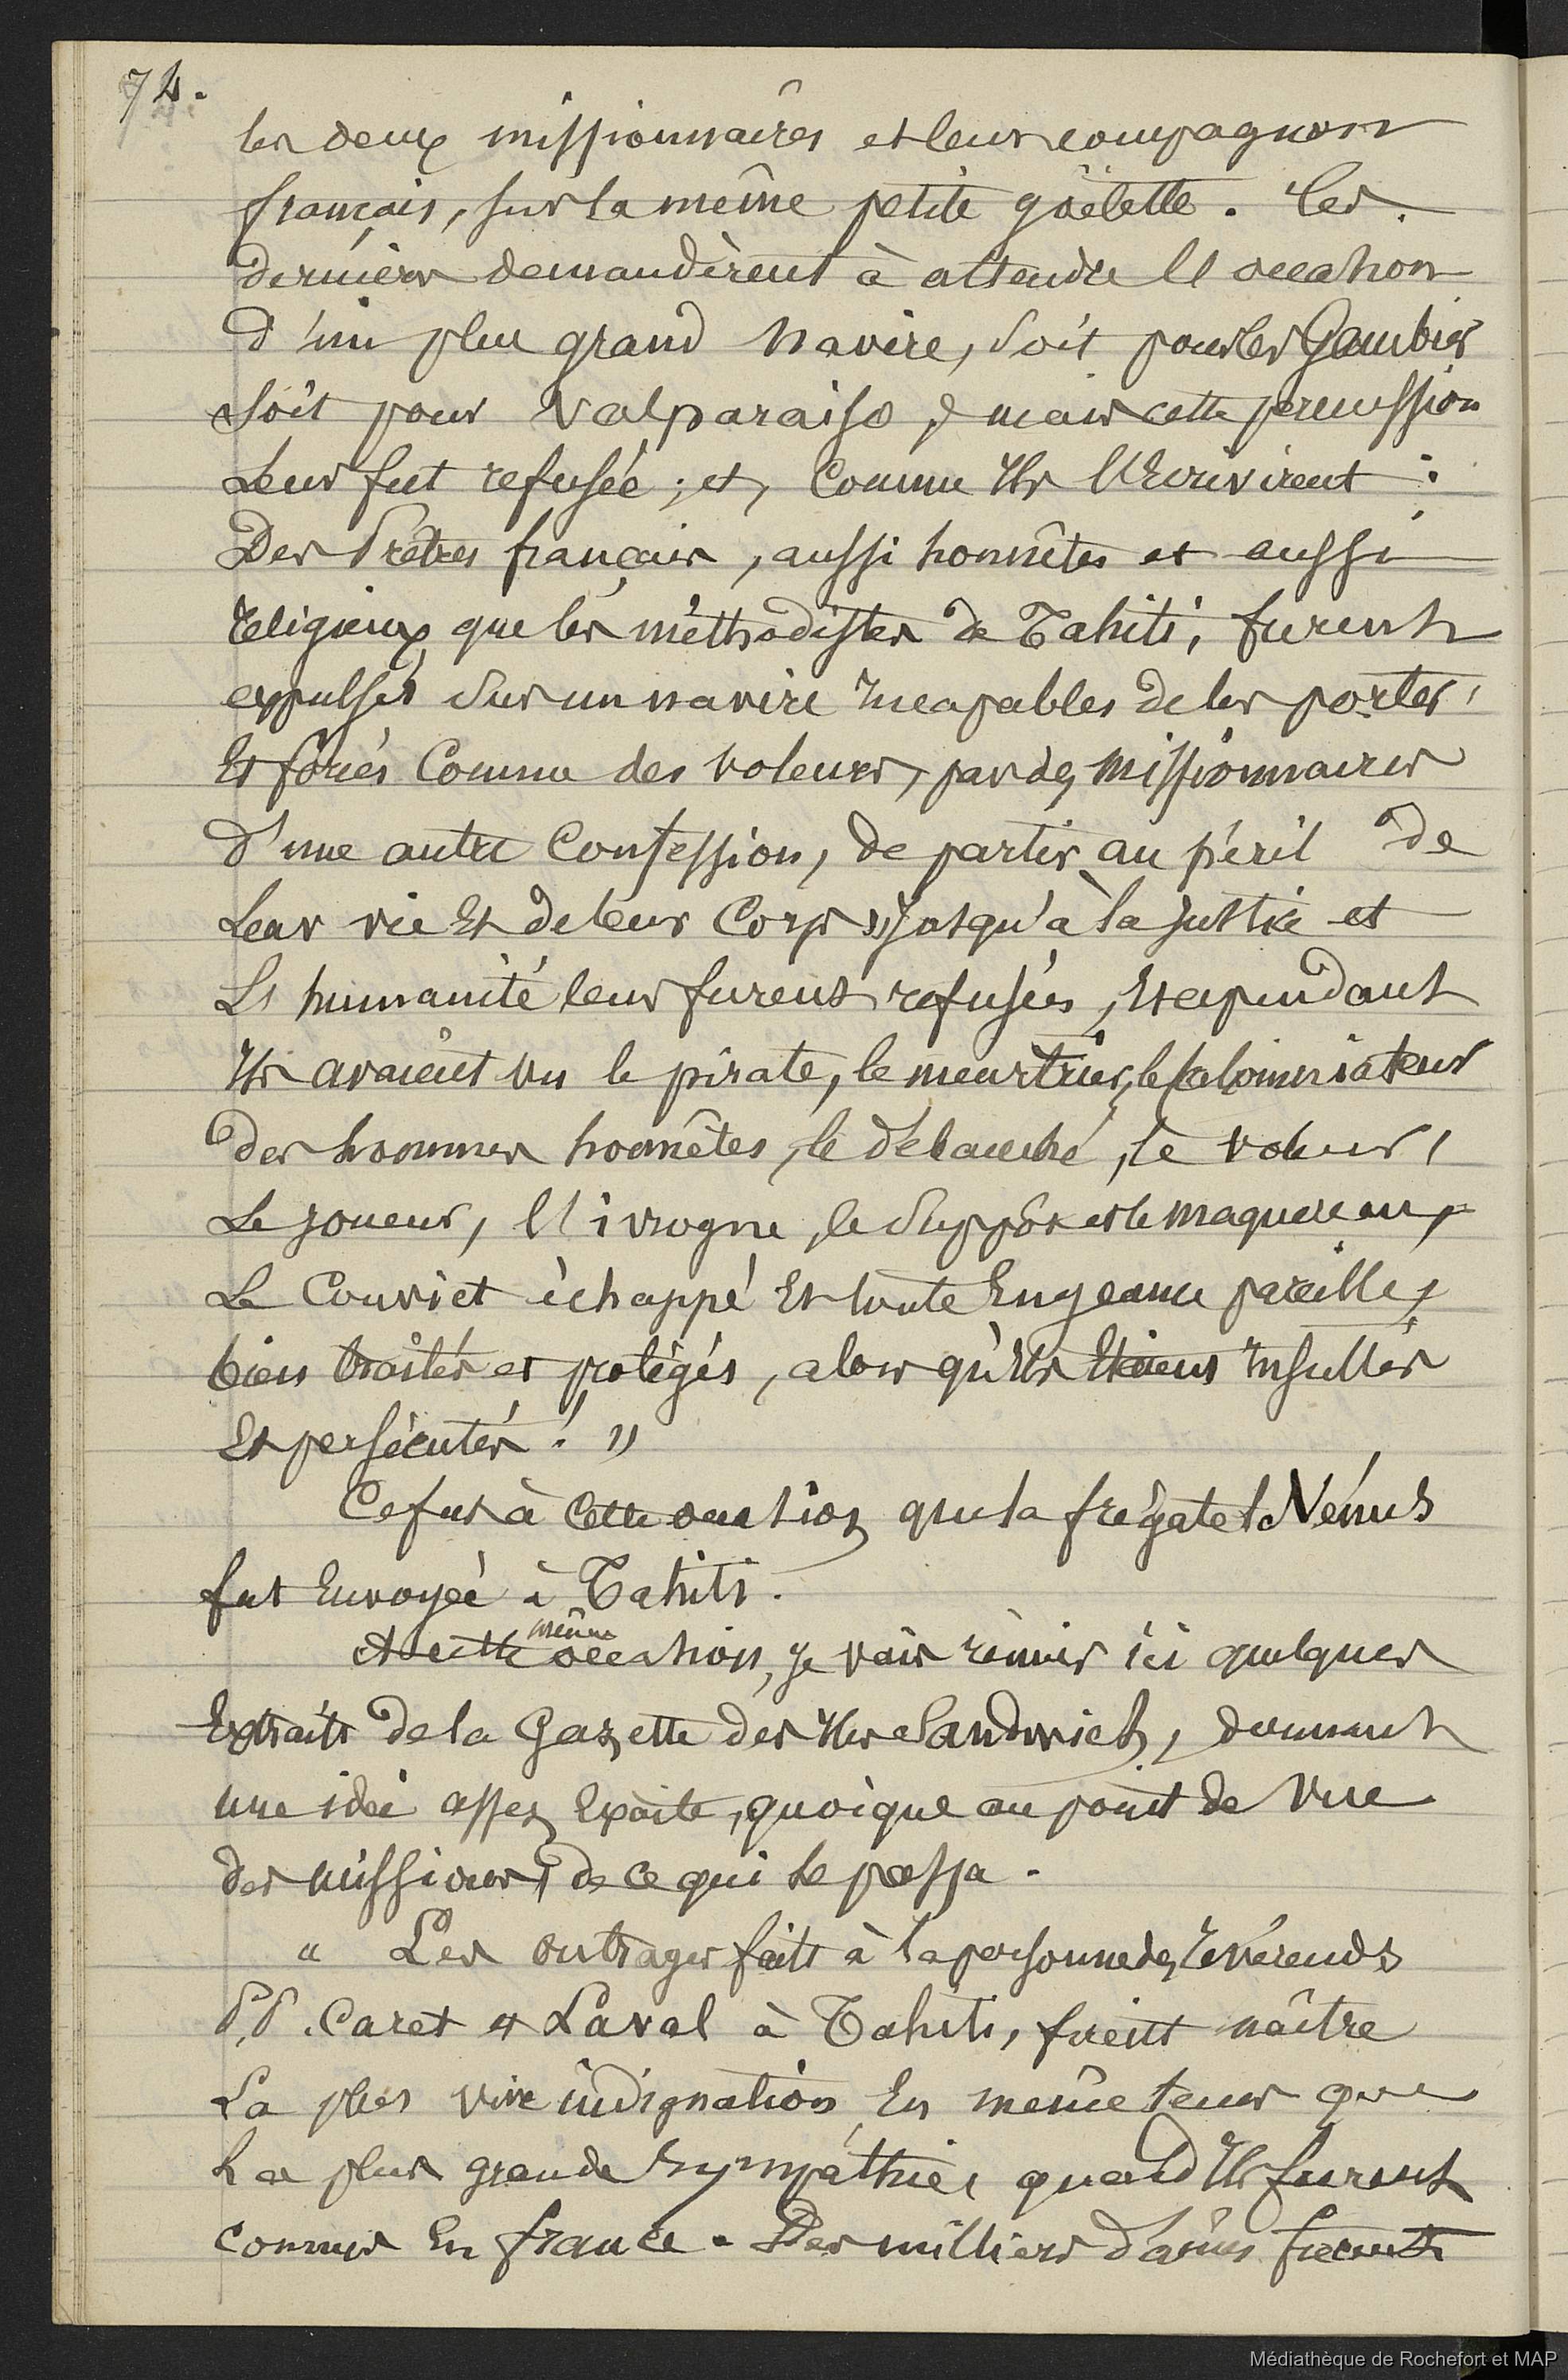 74.
les deux missionnaires et leur compagnon
français, sur la même petite goëlette. Ces
derniers demandèrent à attendre l'occasion
d'un plus grand navire, soit pour les Gambier
soit pour Valparaiso, mais cette permission
leur fut refusée ; et, comme ils l'écrivirent :
Des Prêtres français, aussi honnêtes et aussi
religieux que les méthodistes de Tahiti, furent
expulsés sur un navire incapables de les porter,
Et forcés comme des voleurs, par des missionnaires
d'une autre confession, de partir au péril de
leur vie Et de leur corps » Jusqu'à la justice et
l'humanité leur furent refusées, Et cependant
Ils avaient vu le pirate, le meurtrier, le calomniateur
des hommes honnêtes, le débauché, le voleur,
le joueur, l'ivrogne, le suppôt et le maquereau,
Le convict échappé Et toute Engeance pareille,
bien traités et protégés, alors qu'Ils Etaient insultés
Et persécutés ! »
Ce fut à cette occasion que la frégate la Vénus
fut Envoyée à Tahiti.
A cette même occasion, je vais réunir ici quelques
Extraits de la Gazette des Iles Sandwich, donnant
une idée assez Exacte, quoique au point de vue
des missions, de ce qui se passa.
" Les outrages faits à la personne des Révérends
P.P. Caret et Laval à Tahiti, firent naître
La plus vive indignation En même temps que
La plus grande sympathie, quand Ils furent
connus En france. Des milliers d'âmes furent
Médiathèque de Rochefort et MAP